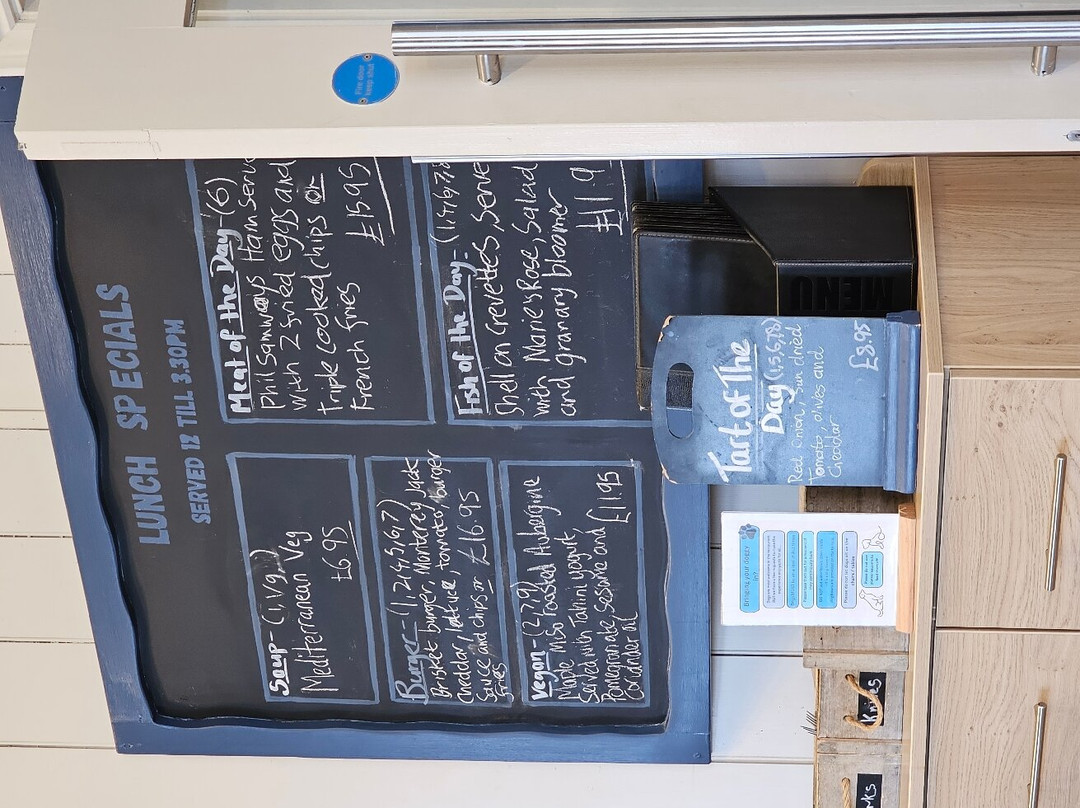 LUNCH SPECIALS
SERVED 12 TILL 3.30PM
Soup- (1,Vg)
Mediterranean Veg
£6.95
Burger - (1,2,4,5,6,7)
Brisket burger, Monterey Jack
Cheddar, lettuce, tomato, burger
Sauce and chips or £16.95
fries
Vegan - (2,7,9)
Maple Miso roasted Aubergine
Served with Tahini yogurt,
Pomegranate Sesame and £11.95
Coriander oil
Meat of the Day - (6)
Phil Samways Ham Serve
with 2 fried eggs and
Triple cooked chips or
French fries
£15.95
Fish of the Day -
Shell on Crevettes, Serve
with Marie Rose, Salad
and granary bloomer
£11.9
Tart of The
Day (1,5,6,7,8)
Red Onion, Sun dried
tomato, olives and
Cheddar
£8.95
MENU
Bringing your doggy
Knives
rks
Fire door
keep shut